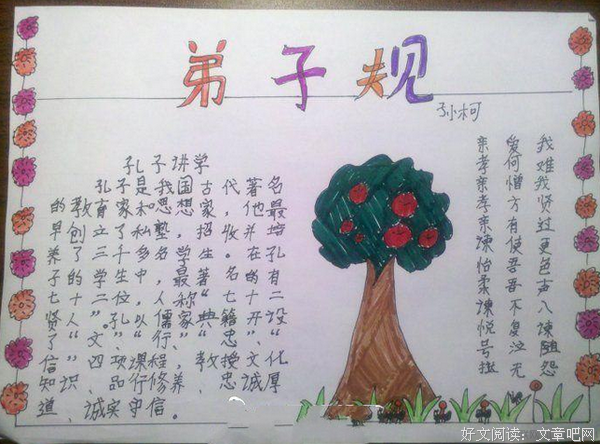 弟子规
孙柯
孔子讲学
孔子是我国古代著名
的教育家和思想家，他最
早创立了私塾，招收并培
养了三千多名学生。在孔
子的学生中，最著名的有
七十二位，人称“七十二
贤人”。孔以儒家典籍开设
了“文”、“行”、“忠”、“
信”四项课程，教授文化
知识、品行修养、忠诚厚
道、诚实守信。
我难我贤过更色声入谏随怨
爱何憎方有使吾吾不复泣无
亲孝亲孝亲谏怡柔谏悦号挞
好文阅读：文章吧网